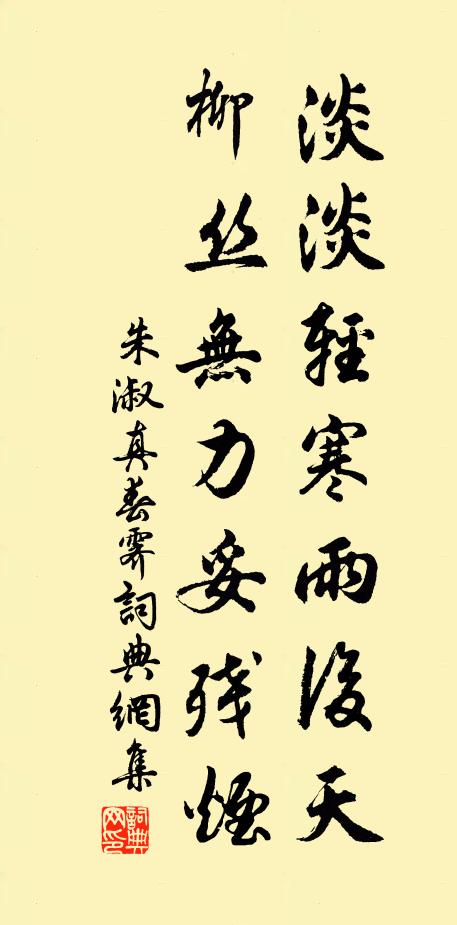 淡淡輕寒雨後天
柳丝無力妥残煙
朱淑真春霽詞典網集
詞典网印